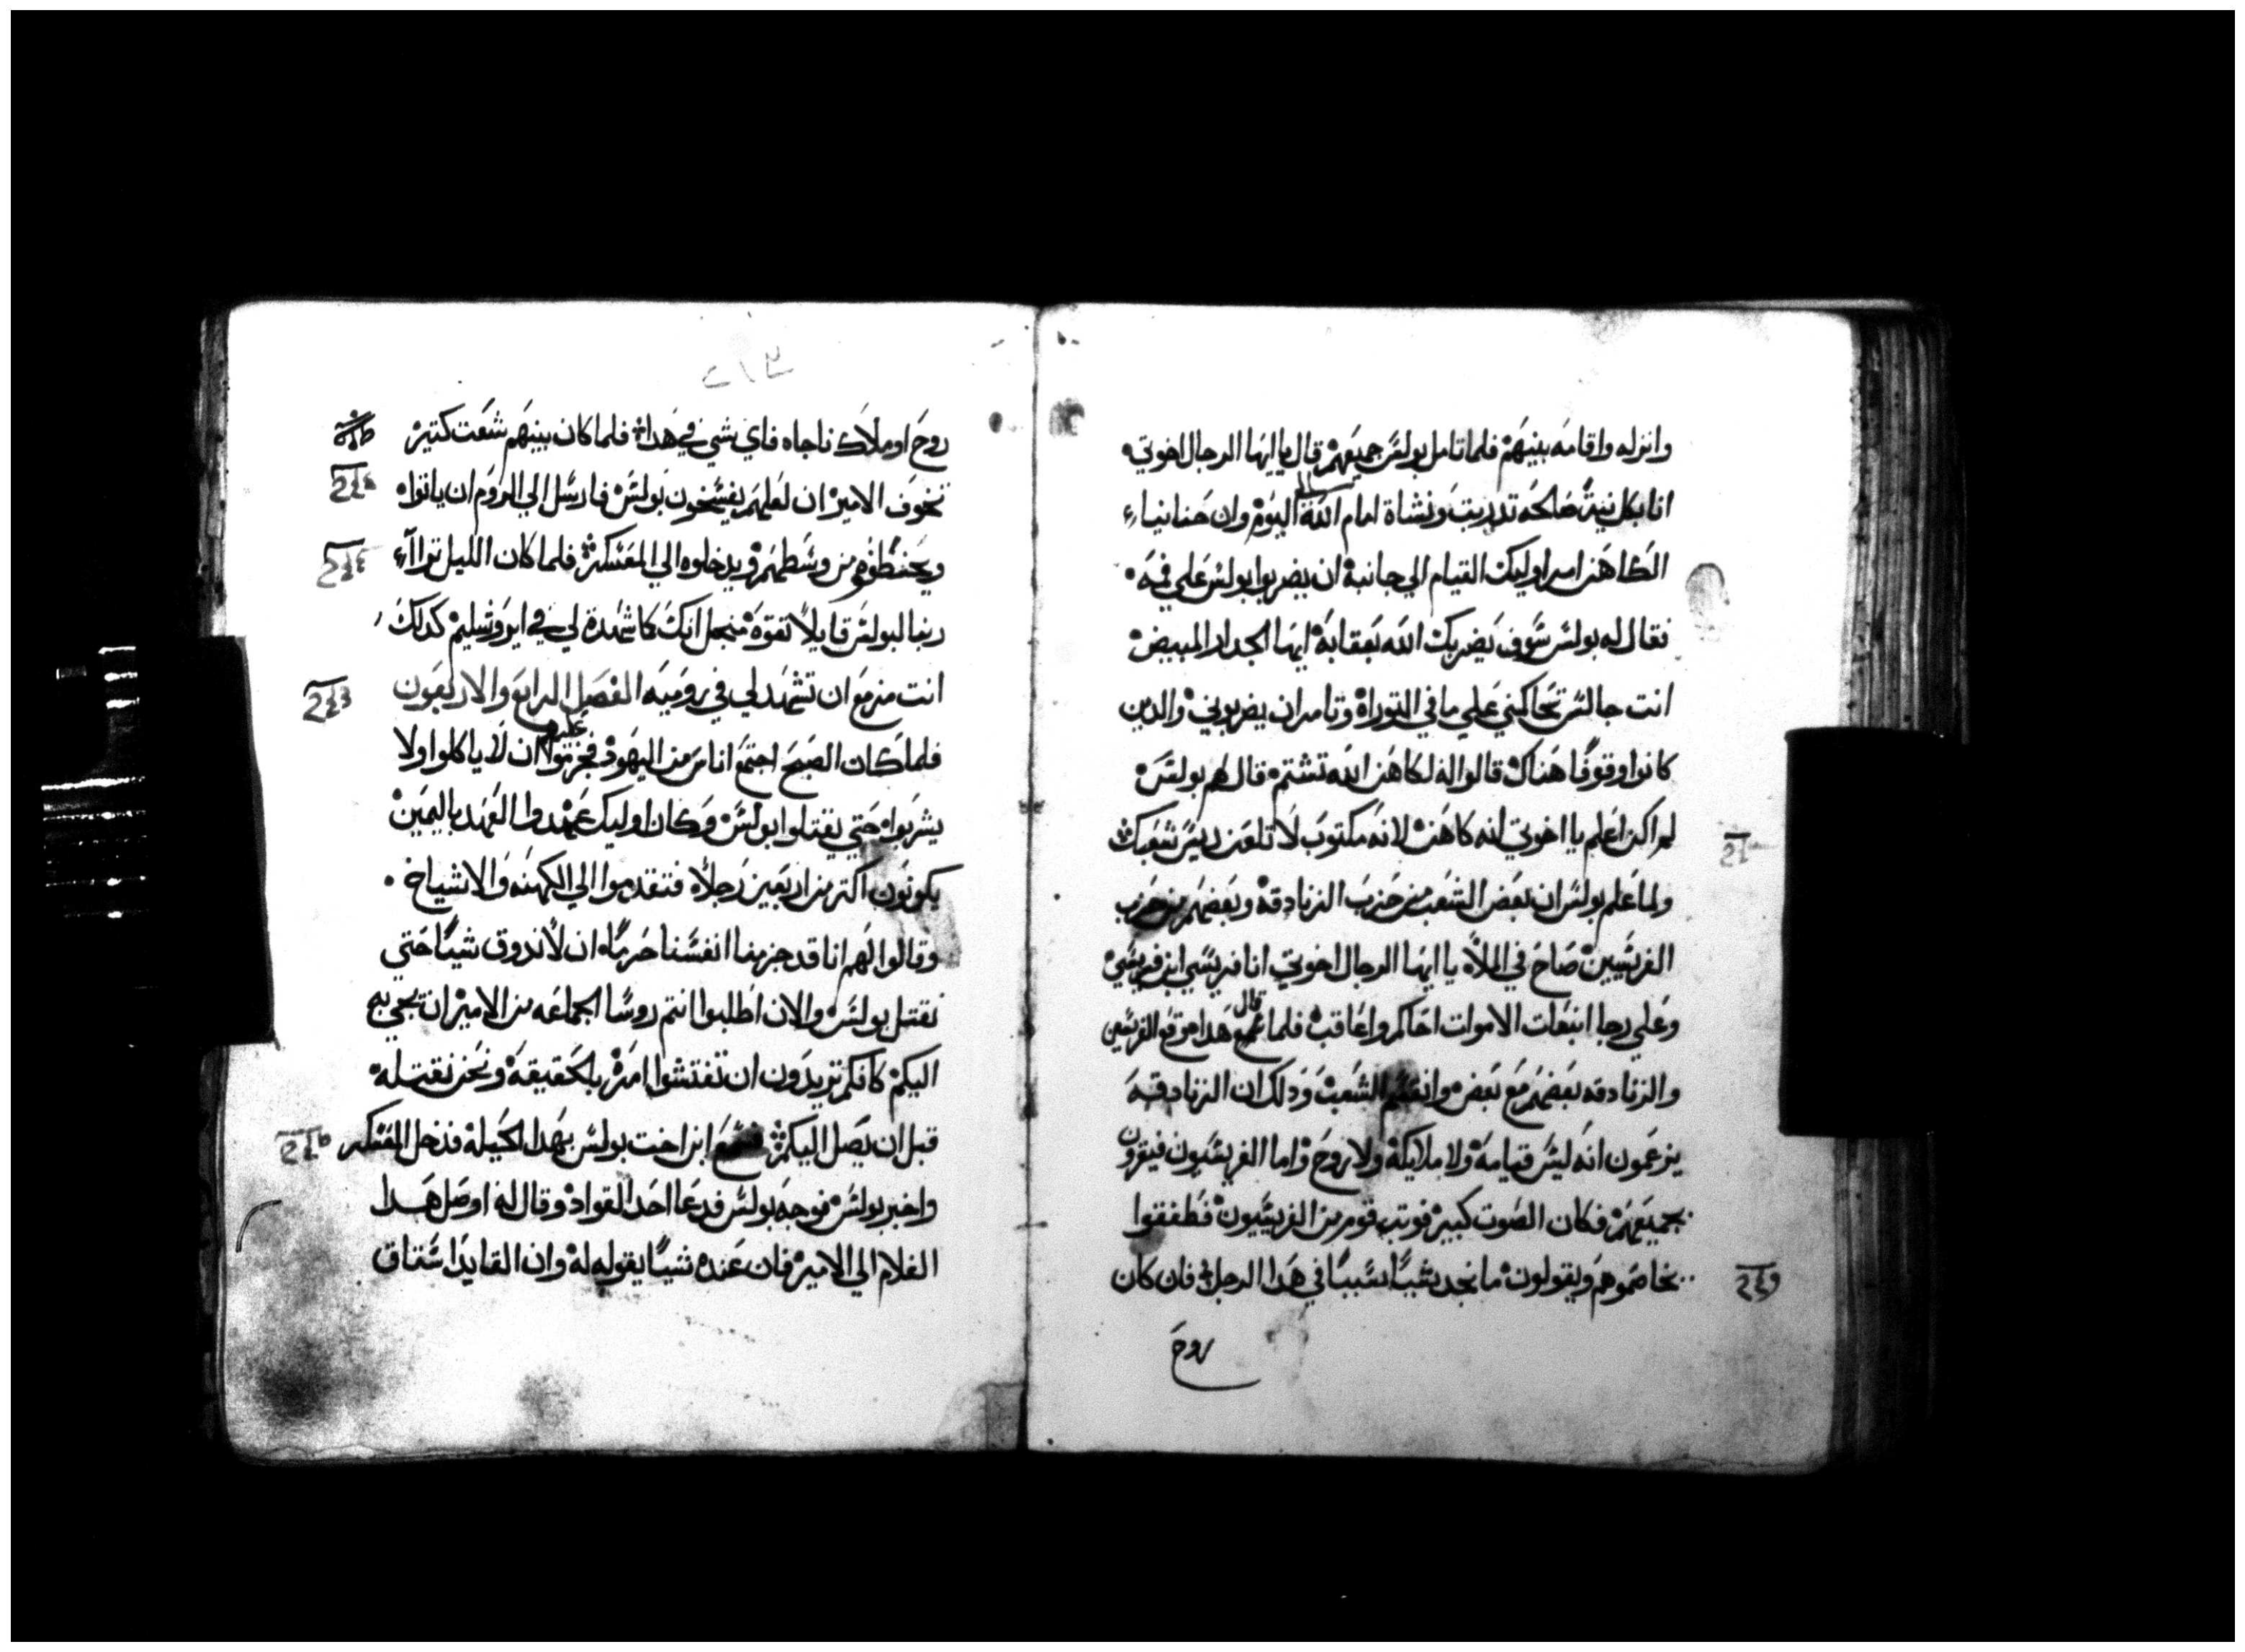 وانزله واقامه بينهم فلما تامل بولس جميعهم قال يا ايها الرجال اخوتي
انا بكل نية صالحه تدربت ونشاة امام الله الي اليوم وان حنانياء
الكاهن امر اوليك القيام الي جانبه ان يضربوا بولس علي فمه
فقال له بولس سوف يضربك الله بعقابه ايها الجدار المبيض
انت جالس تحاكمني علي ما في التوراة وتامر ان يضربوني والدين
كانوا وقوفا هناك قالوا له لكاهن الله تشتم قال لهم بولس
لم اكن اعلم يا اخوتي انه كاهن لانه مكتوب لا تلعن ريس شعبك
ولما علم بولس ان بعض الشعب من حزب الزنادقه وبعضهم من حزب
الفريسيين صاح في الملا يا ايها الرجال اخوتي انا فريسي ابن فريسي
وعلي رجا انبعات الاموات احاكم واعاقب فلما قال هدا وقع الفريسين
والزنادقه بعضهم مع بعض وانقسم الشعب ودلك ان الزنادقه
يزعمون انه ليس قيامه ولا ملايكة ولا روح واما الفريسيون فيقرون
بجميعهم فكان الصوت كبير فوتب قوم من الفريسيون فطفقوا
يخاصموهم ويقولون ما نجد شييا سببا في هدا الرجل فان كان
روح
٢١٤
روح او ملاك ناجاه فاي شي في هدا فلما كان بينهم شغت كتير
تخوف الامير ان لعلهم يفسخون بولس فارسل الي الروم ان ياتوا
ويختطفوه من وسطهم ويدخلوه الي المعسكر فلما كان الليل تراآء
ربنا لبولس قايلا تقوة منجل انك كما شهدة لي في ايروشليم كدلك
انت مزمع ان تشهد لي في روميه الفصل الرابع والاربعون
فلما كان الصبح اجتمع اناس من اليهود فحزموا عليهم ان لا ياكلوا ولا
يشربوا حتي يقتلوا بولس وكان اوليك عهدوا العهد باليمين
يكونون اكتر من اربعين رجلا فتقدموا الي الكهنه والاشياخ
وقالوا لهم انا قد حزمنا انفسنا حرما ان لا ندوق شييا حتي
نقتل بولس والان اطلبوا انتم روسا الجماعه من الامير ان يجي به
اليكم كانكم تريدون ان تفتشوا امره بالحقيقه ونحن نقتله
قبل ان يصل اليكم فسمع ابن اخت بولس بهدا الحيله فدخل المعسكر
واخبر بولس فوجه بولس فدعا احد القواد وقال له اوصل هدا
الغلام الي الامير فان عنده شييا يقوله له وان القايد استاق